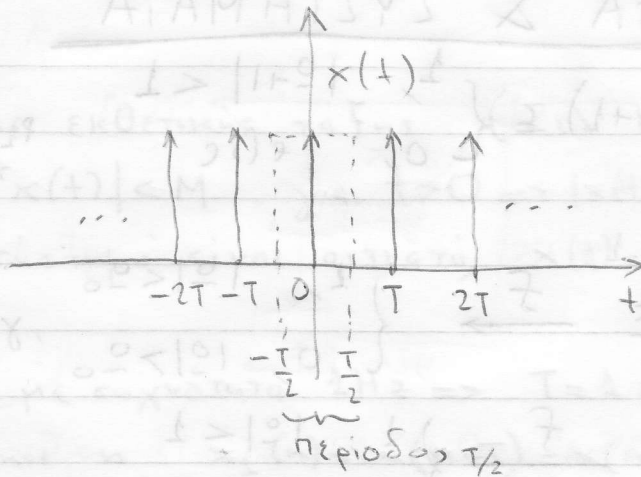 x(t)
... ...
-2T -T 0 T 2T t
-T/2 T/2
περίοδος T/2